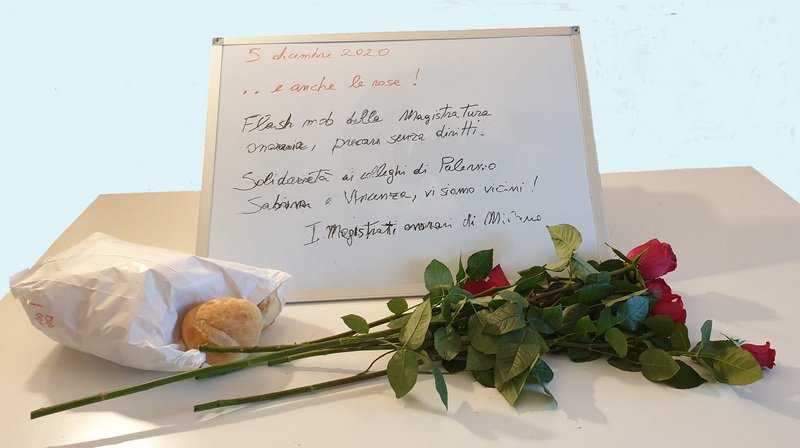 5 dicembre 2020
.. e anche le rose !
Flash mob della Magistratura
onoraria, precari senza diritti.
Solidarietà ai colleghi di Palermo
Sabrina e Vincenza, vi siamo vicini !
I Magistrati onorari di Milano